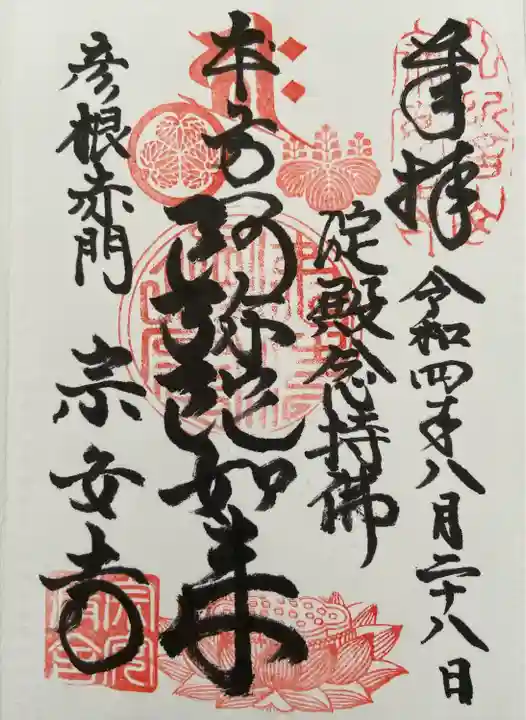 奉拝
令和四年八月二十八日
淀殿念持佛
本尊
阿弥陀如来
彦根赤門
宗安寺